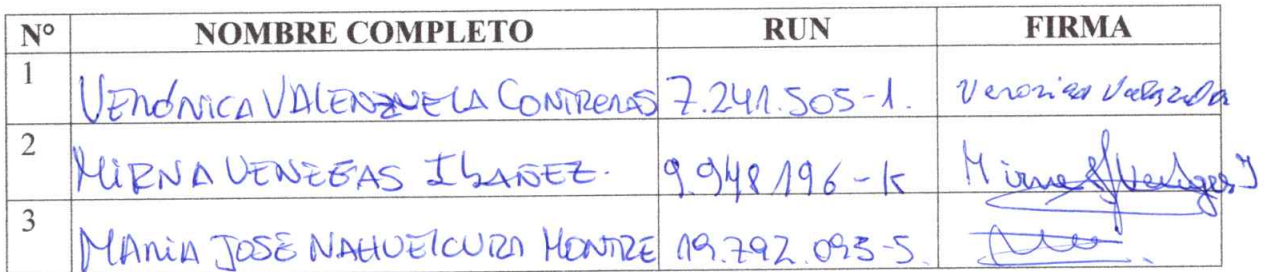 N° NOMBRE COMPLETO RUN FIRMA
1 VERÓNICA VALENZUELA CONTRERAS 7.241.505-1. Veronica Valenzuela
2 MIRNA VENEGAS IBAÑEZ. 9.948.196-K Mirna Venegas I
3 MARIA JOSÉ NAHUELCURA MONTRE 19.792.093-5